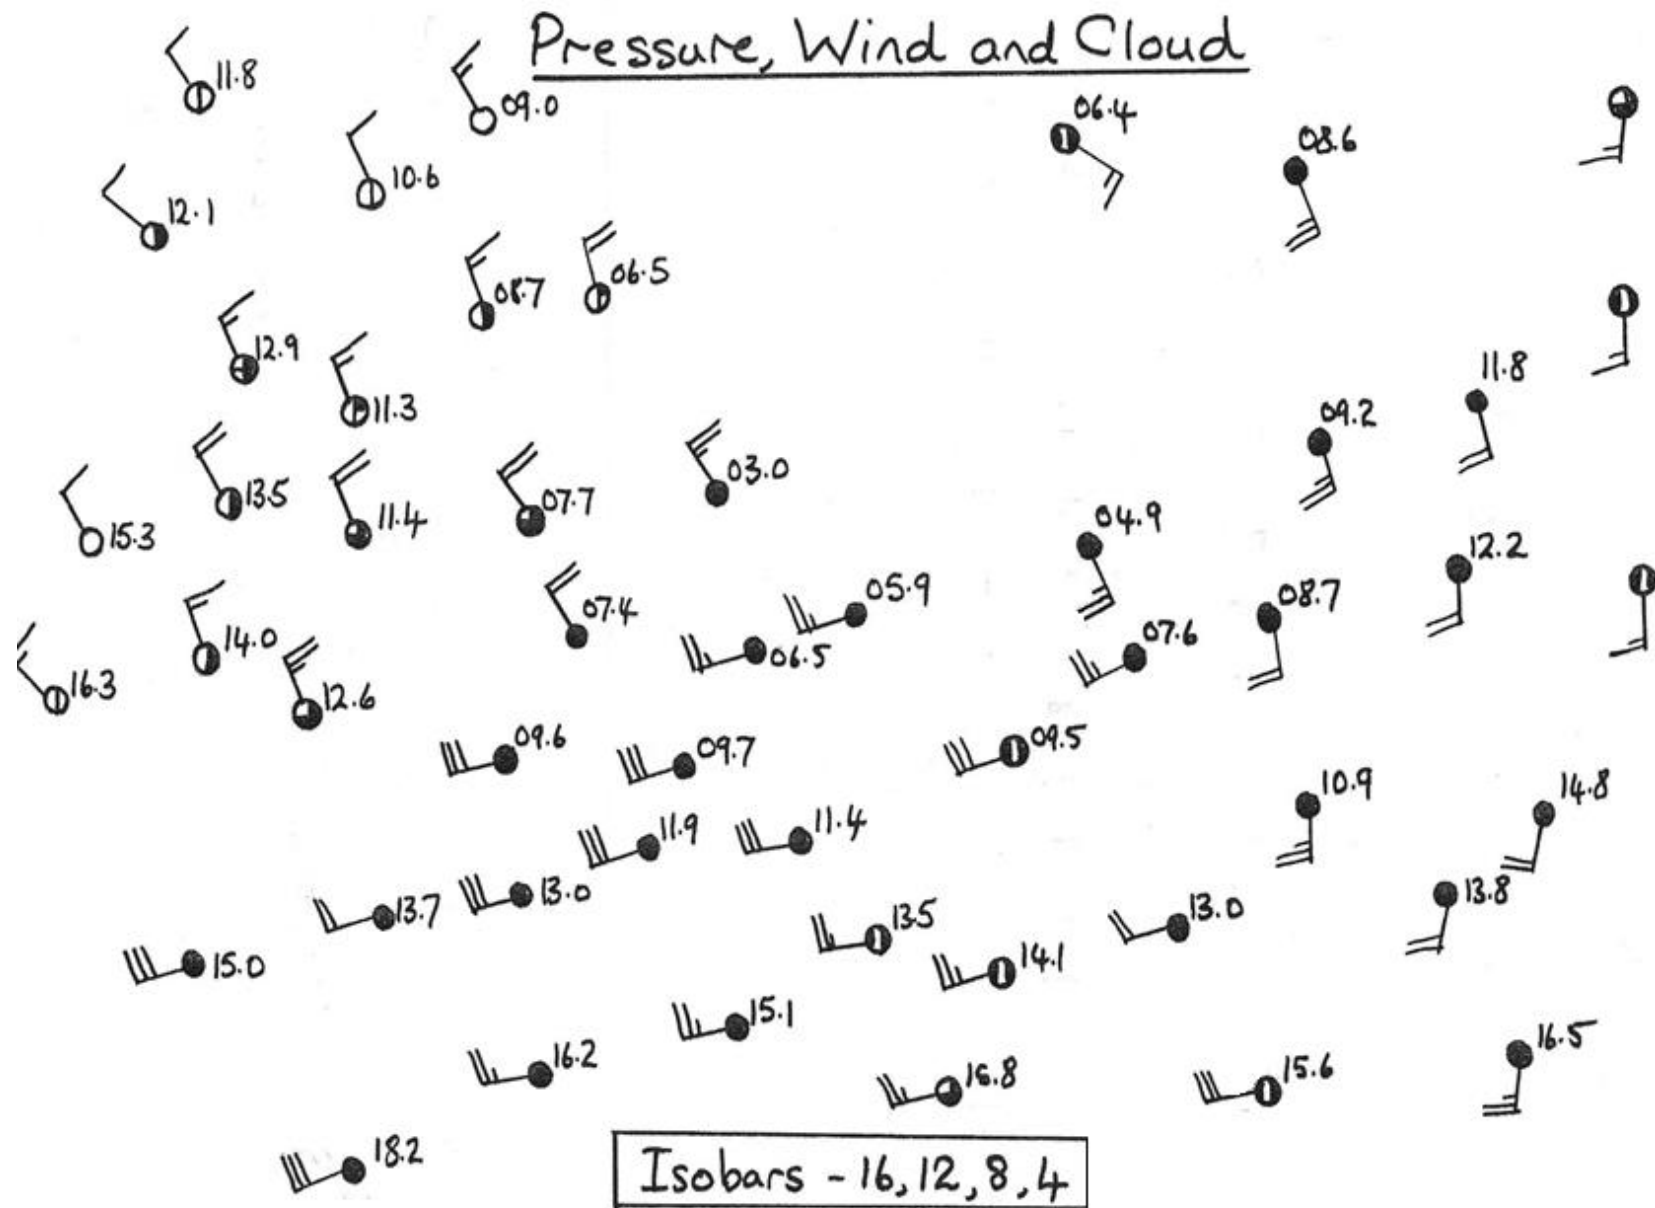 Pressure, Wind and Cloud
11.8
09.0
06.4
08.6
10.6
12.1
08.7
06.5
12.9
11.3
11.8
09.2
13.5
11.4
07.7
03.0
15.3
04.9
12.2
07.4
05.9
08.7
14.0
06.5
07.6
16.3
12.6
09.6
09.7
09.5
10.9
14.8
11.9
11.4
13.7
13.0
13.5
13.0
13.8
15.0
14.1
15.1
16.2
15.6
16.5
18.2
Isobars - 16, 12, 8, 4